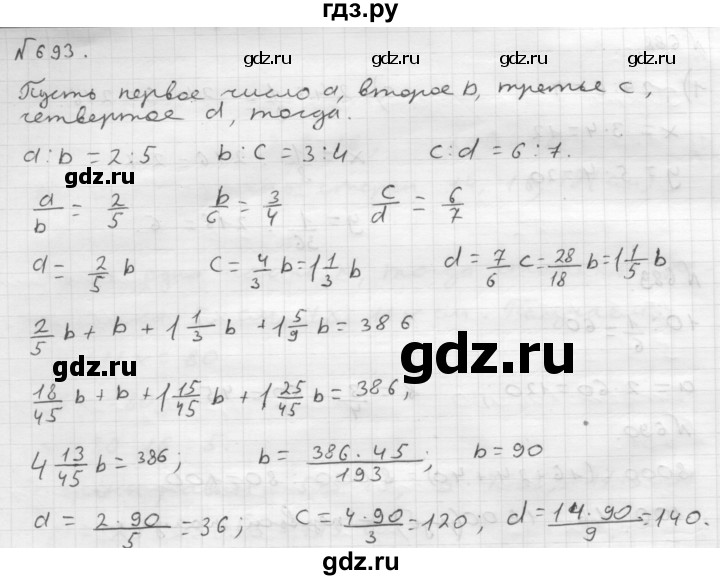 гдз.ру
№693.
gdz.ru gdz.ru
Пусть первое число a, второе b, третье c,
четвертое d, тогда.
a:b = 2:5 b:c = 3:4 c:d = 6:7.
gdz.ru gdz.ru
a/b = 2/5 b/c = 3/4 c/d = 6/7
a = 2/5 b c = 4/3 b = 1 1/3 b d = 7/6 c = 28/18 b = 1 1/5 b
gdz.ru
2/5 b + b + 1 1/3 b + 1 5/9 b = 386
gdz.ru
gdz.ru
18/45 b + b + 1 15/45 b + 1 25/45 b = 386;
gdz.ru
4 13/45 b = 386; b = 386·45/193; b = 90
gdz.ru gdz.ru
a = 2·90/5 = 36; c = 4·90/3 = 120; d = 14·90/9 = 140.
gdz.ru